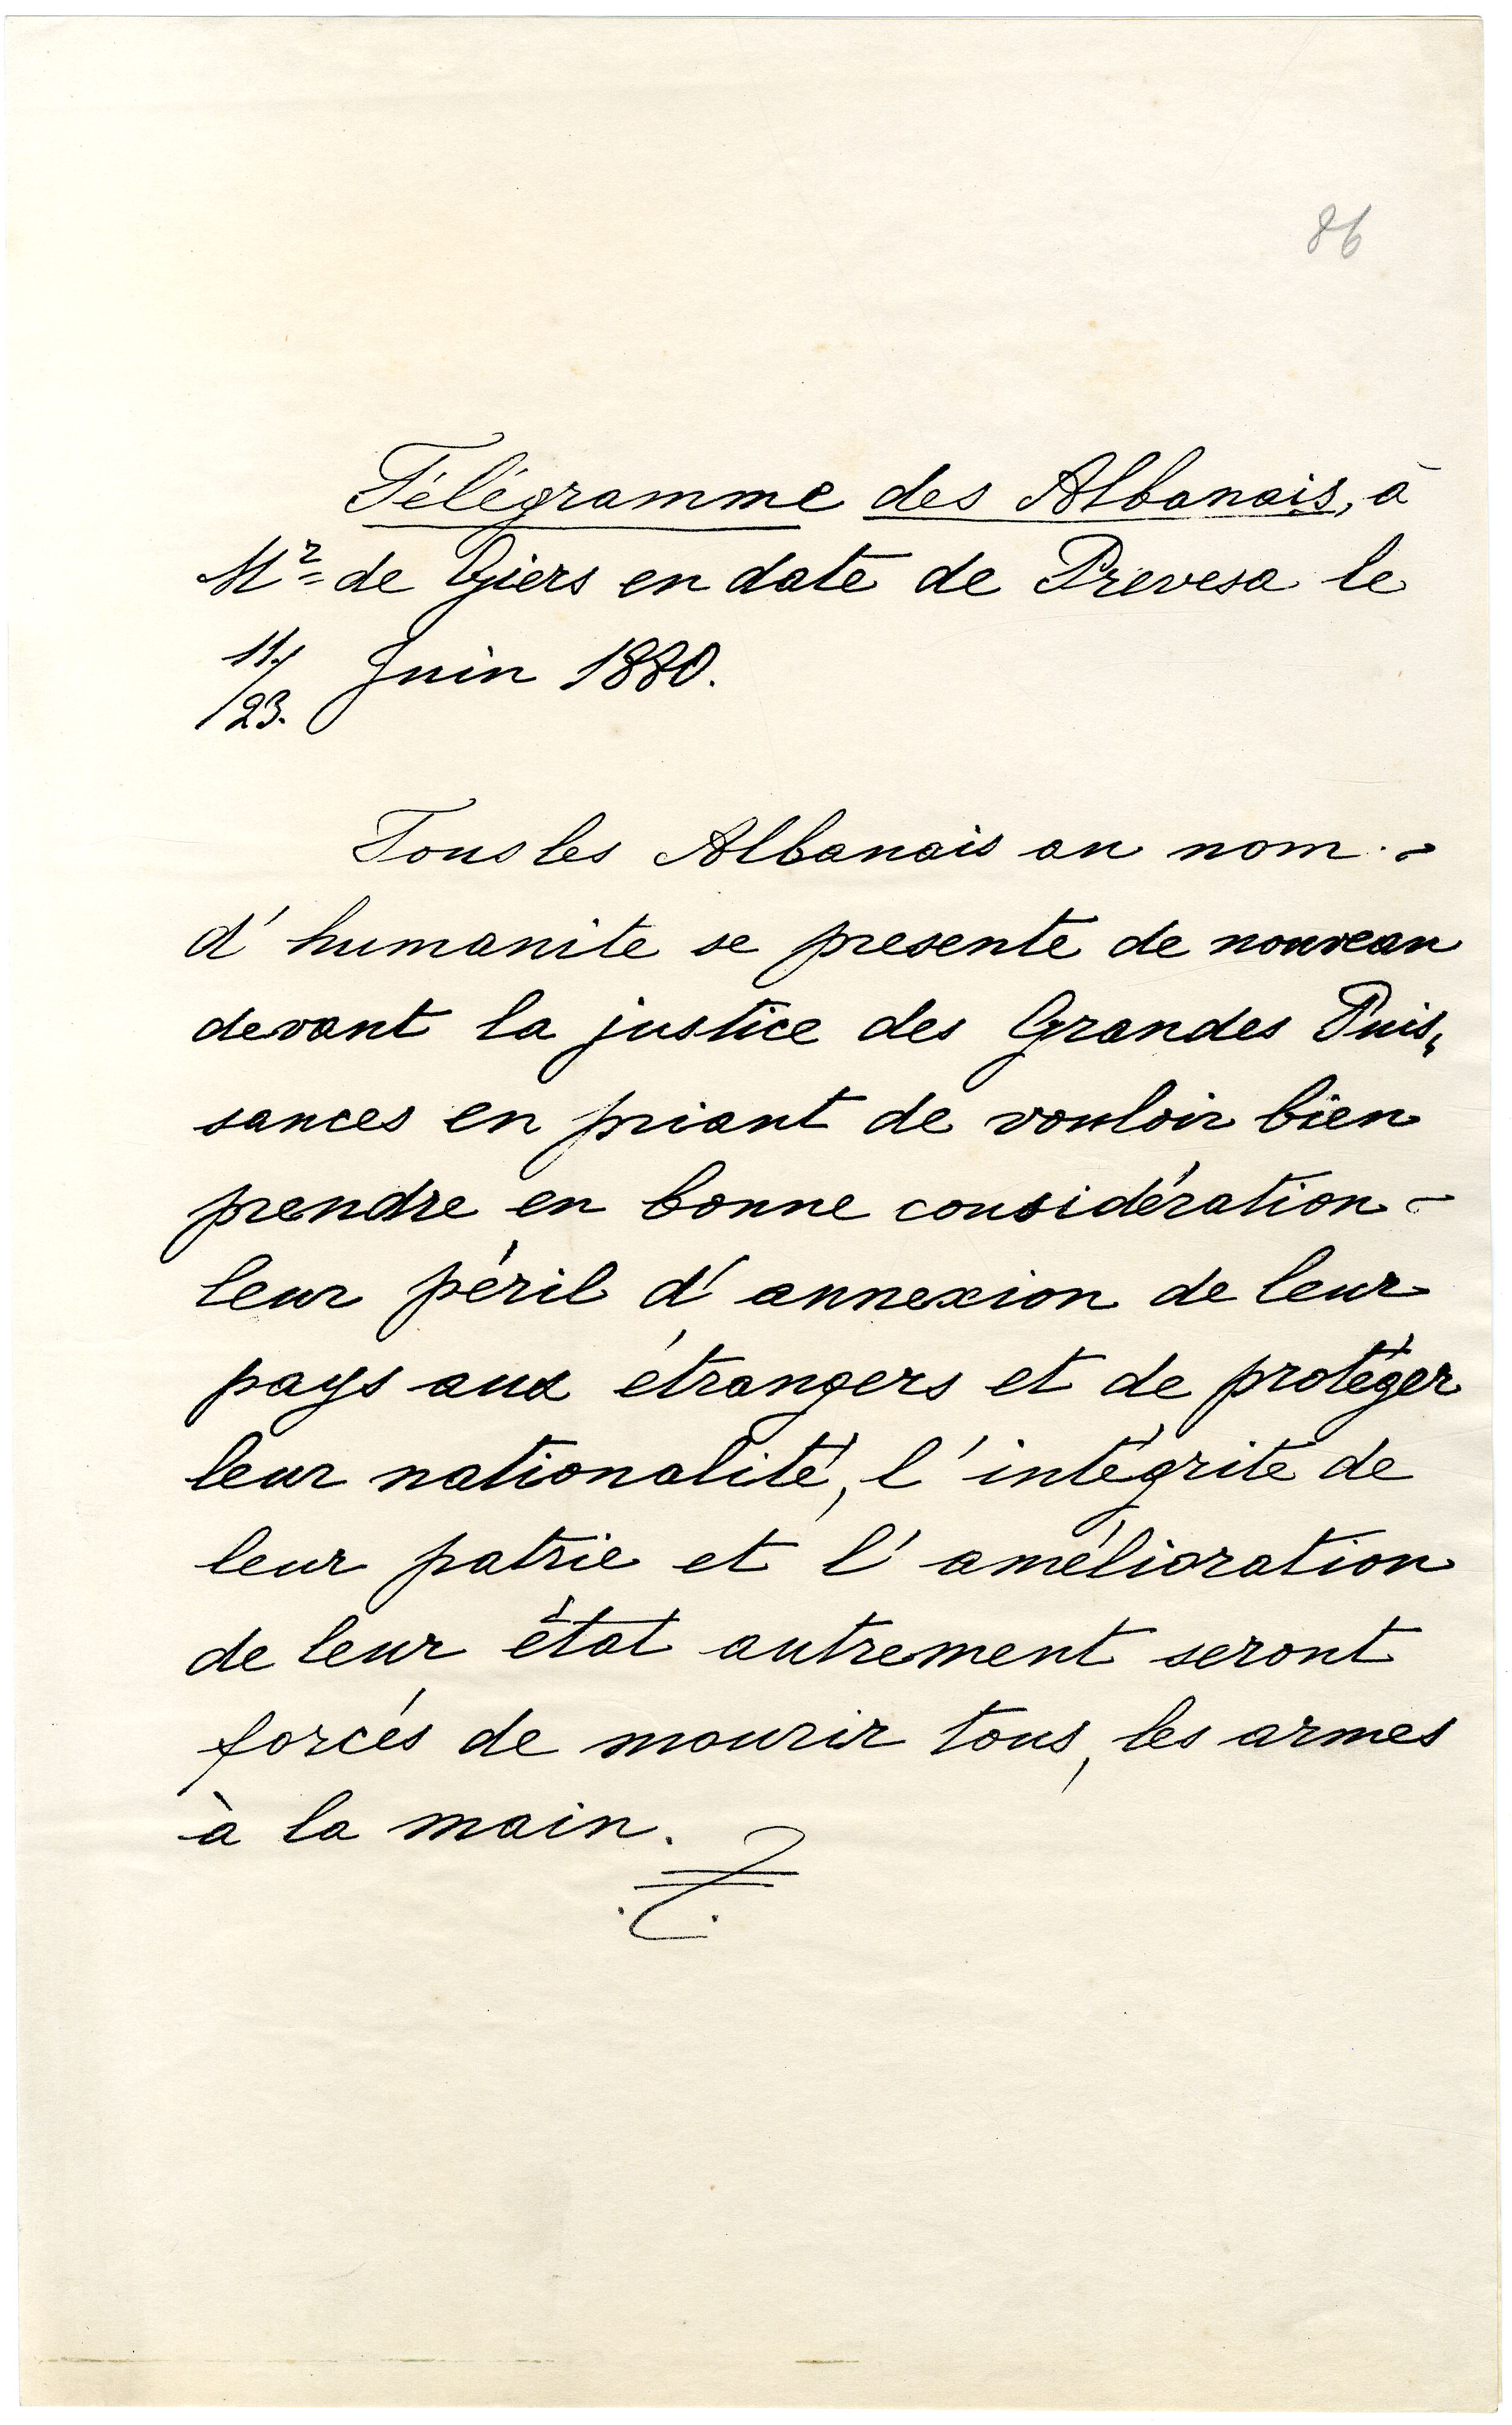 86
Télégramme des Albanais, à
Mr de Giers en date de Prevesa le
11/23. Juin 1880.
Tous les Albanais au nom
d'humanite se presente de nouveau
devant la justice des Grandes Puis-
sances en priant de vouloir bien
prendre en bonne considération
leur péril d'annexion de leur
pays aux étrangers et de protéger
leur nationalité, l'intégrité de
leur patrie et l'amélioration
de leur état autrement seront
forcés de mourir tous, les armes
à la main.